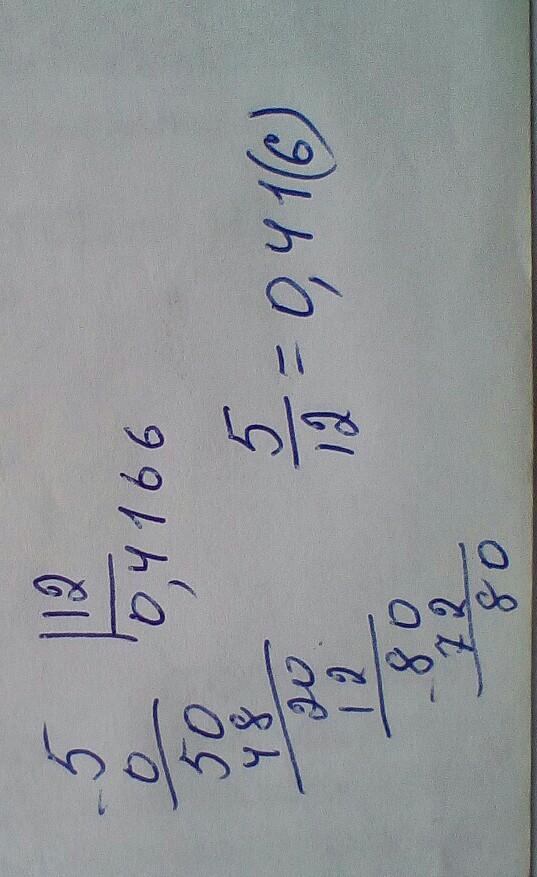 5 | 12
0 0,4166
50
48
20
12
80
72
80
5/12 = 0,41(6)